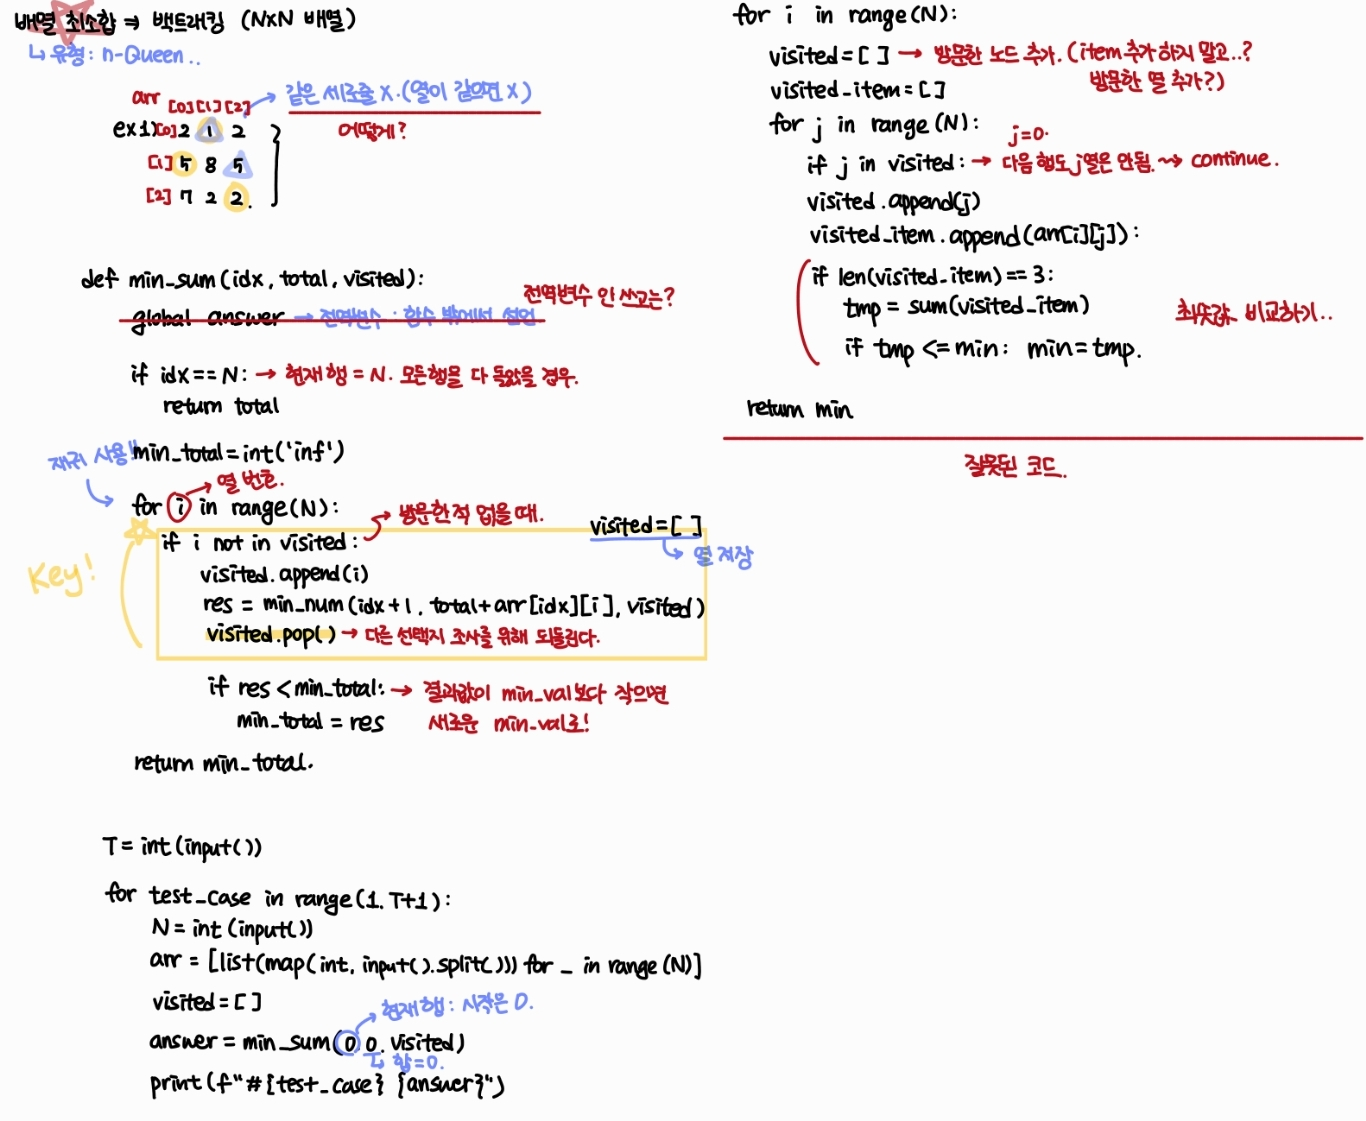 배열 최소합 ⇒ 백트래킹 (N×N 배열)
↳ 유형: n-Queen..
arr
[0][1][2] → 같은 세로줄 X.(열이 같으면 X)
어떻게?
ex1) [0] 2 1 2
[1] 5 8 5
[2] 7 2 2.
def min_sum(idx, total, visited):
전역변수 안 쓰고는?
global answer → 전역변수 : 함수 밖에서 선언
if idx == N: → 현재행 = N. 모든행을 다 돌았을 경우.
return total
min_total = int('inf')
재귀 사용!!
for i in range(N):
→ 열 번호.
→ 방문한적 없을 때.
visited = [ ]
↳ 열 저장
Key!
if i not in visited:
visited.append(i)
res = min_num(idx+1, total+arr[idx][i], visited)
visited.pop() → 다른 선택지 조사를 위해 되돌린다.
if res < min_total: → 결과값이 min_val보다 작으면
min_total = res 새로운 min_val로!
return min_total.
T = int(input())
for test_case in range(1, T+1):
N = int(input())
arr = [list(map(int, input().split())) for _ in range(N)]
visited = [ ]
→ 현재행 : 시작은 0.
answer = min_sum(0 0, visited)
↳ 합=0.
print(f"#{test_case} {answer}")
for i in range(N):
visited = [ ] → 방문한 노드 추가. (item 추가하지 말고..?
visited_item = [ ] 방문한 열 추가?)
for j in range(N):
j=0.
if j in visited: → 다음 행도 j열은 안됨. ⇝ continue.
visited.append(j)
visited_item.append(arr[i][j]):
if len(visited_item) == 3:
tmp = sum(visited_item)
최솟값 비교하기..
if tmp <= min: min = tmp.
return min
잘못된 코드.